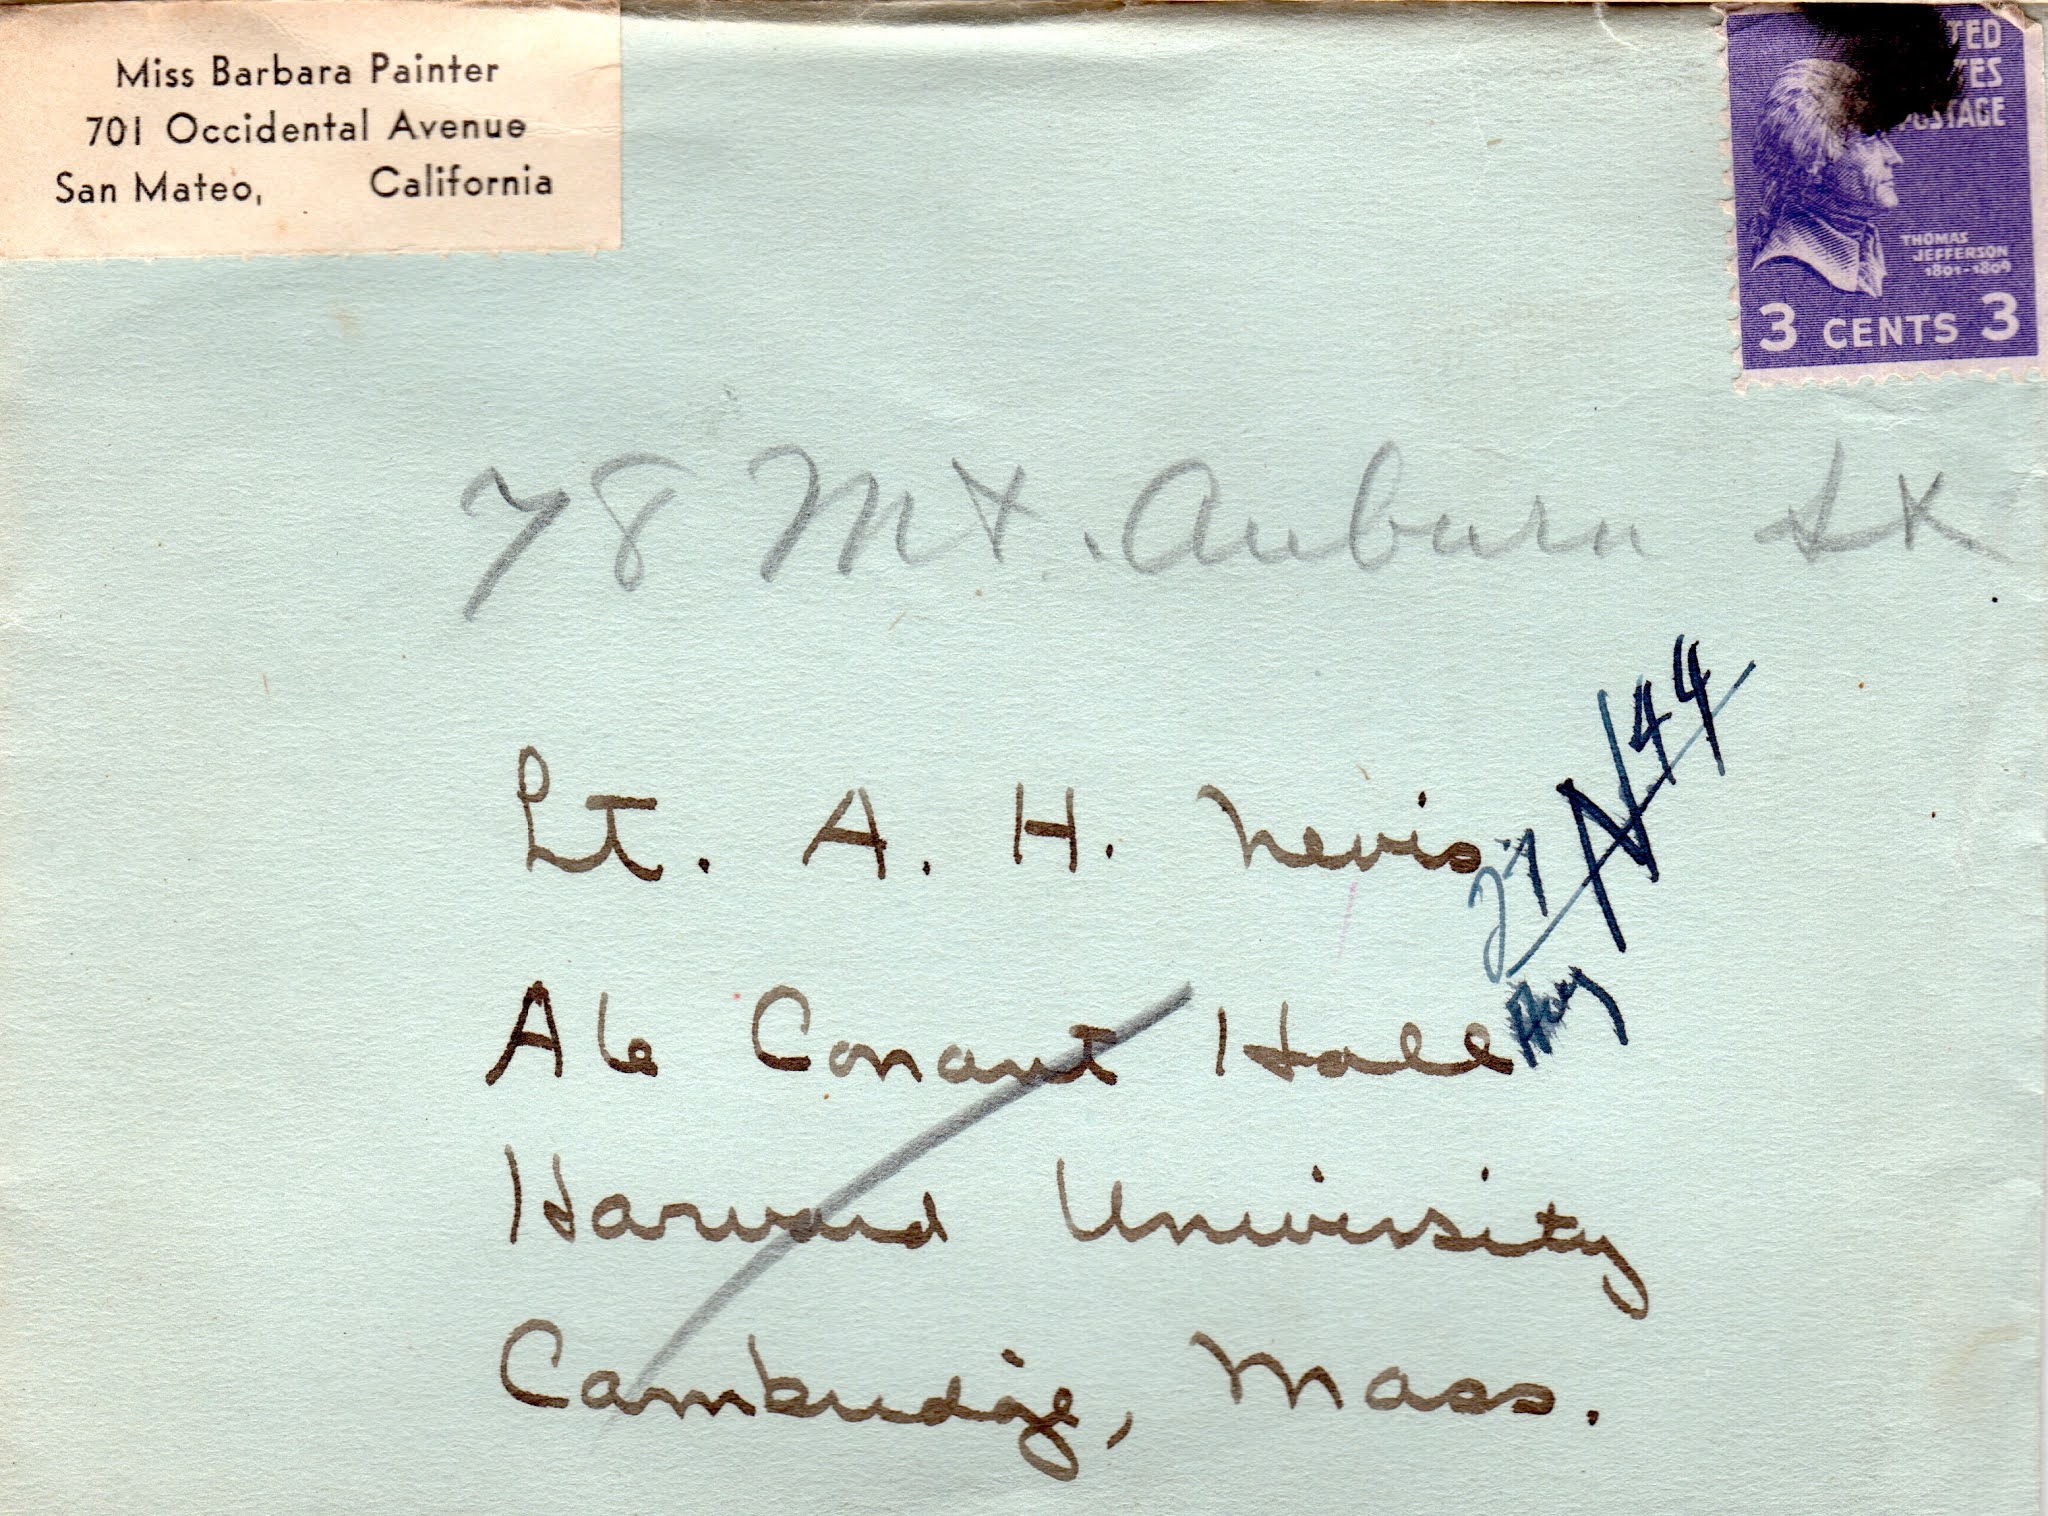 Miss Barbara Painter
701 Occidental Avenue
San Mateo, California
TED
TES
POSTAGE
THOMAS
JEFFERSON
1801-1809
3 CENTS 3
78 Mt. Auburn St
Lt. A. H. Nevis
A16 Conant Hall
Harvard University
Cambridge, Mass.
27
44